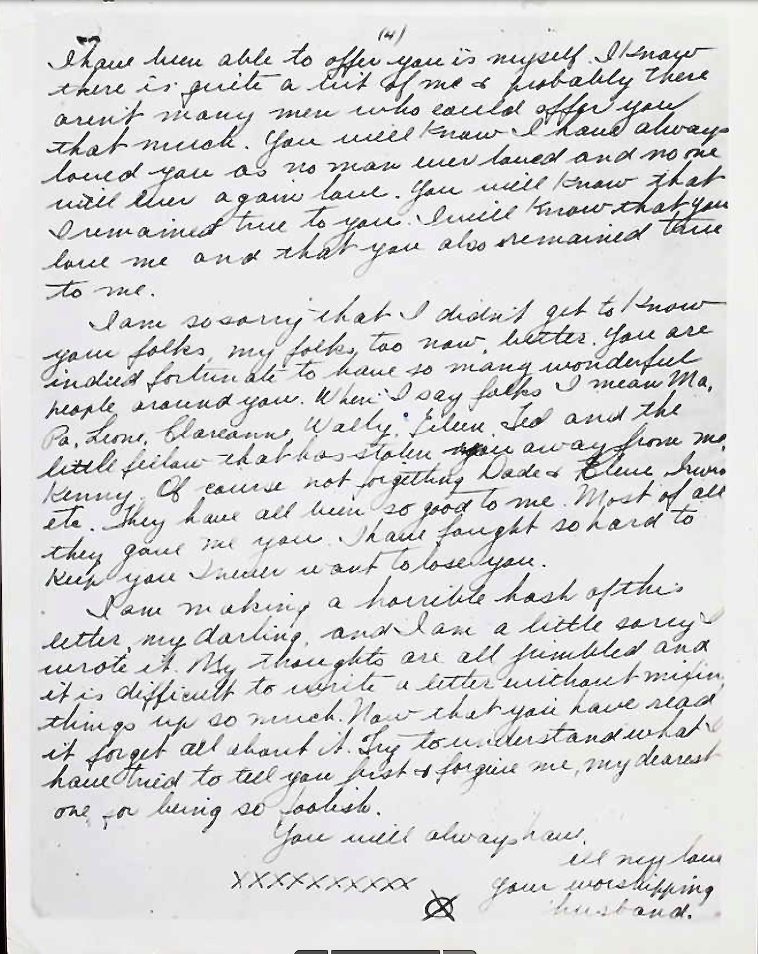 (4)
I have been able to offer you is myself. I know
there is quite a bit of me & probably there
aren't many men who could offer you
that much. You will know I have always
loved you as no man ever loved and no one
will ever again love. You will know that
I remained true to you. I will know that you
love me and that you also remained true
to me.
I am so sorry that I didn't get to know
your folks, my folks, too now, better. You are
indeed fortunate to have so many wonderful
people around you. When I say folks I mean Ma,
Pa, Leone, Clareanne, Wally, Eileen, Ted and the
little fellow that has stolen you away from me,
Kenny. Of course not forgetting Dade &
etc. They have all been so good to me. Most of all
they gave me you. I have fought so hard to
keep you I never want to lose you.
I am making a horrible hash of this
letter, my darling, and I am a little sorry I
wrote it. My thoughts are all jumbled and
it is difficult to write a letter without mixin
things up so much. Now that you have read
it forget all about it. Try to understand what I
have tried to tell you first & forgive me, my dearest
one, for being so foolish.
You will always have
all my love
your worshipping
husband.
XXXXXXXXXX